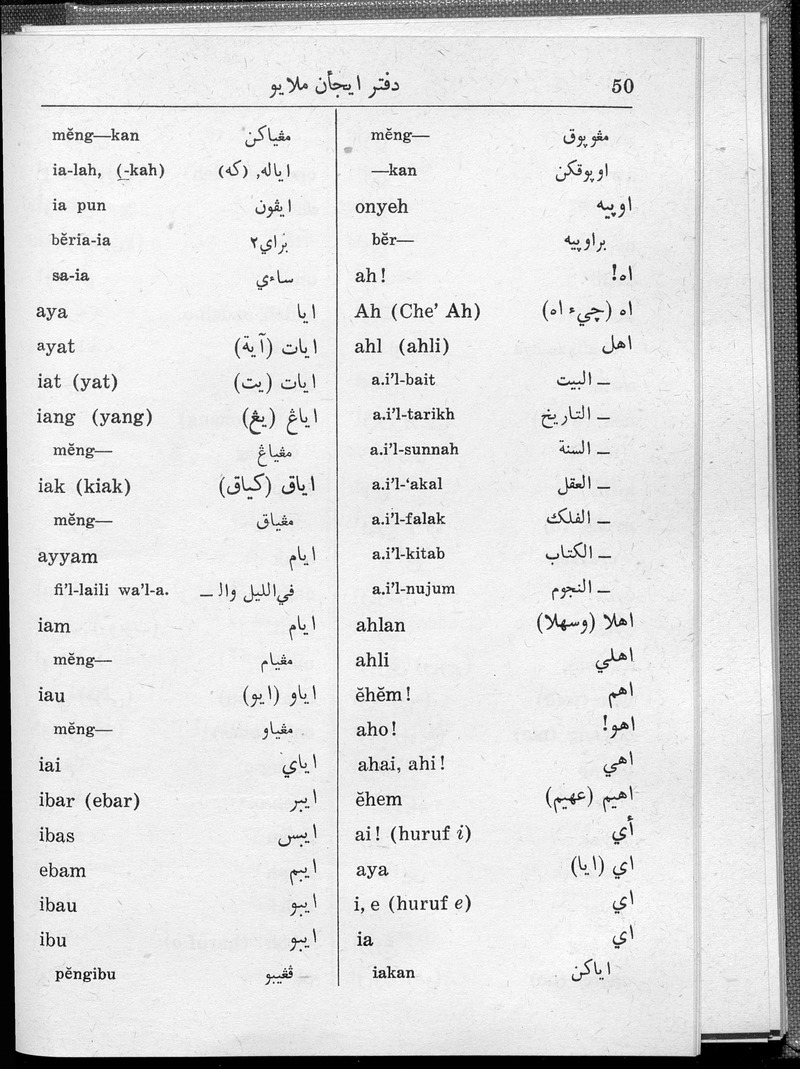 دفتر ايجأن ملايو 50
mĕng— مڠوپوق
—kan اوپوقكن
onyeh اوپيه
bĕr— براوپيه
ah! اه!
Ah (Che’ Ah) اه (چيء اه)
ahl (ahli) اهل
a.i’l-bait — البيت
a.i’l-tarikh — التاريخ
a.i’l-sunnah — السنة
a.i’l-‘akal — العقل
a.i’l-falak — الفلك
a.i’l-kitab — الكتاب
a.i’l-nujum — النجوم
ahlan اهلا (وسهلا)
ahli اهلي
ĕhĕm! اهم
aho! اهو!
ahai, ahi! اهي
ĕhem اهيم (عهيم)
ai! (huruf i) أي
aya اي (ايا)
i, e (huruf e) اي
ia اي
iakan اياكن
mĕng—kan مڠياكن
ia-lah, (-kah) اياله, (كه)
ia pun ايڤون
bĕria-ia براي٢
sa-ia ساءي
aya ايا
ayat ايات (آية)
iat (yat) ايات (يت)
iang (yang) اياڠ (يڠ)
mĕng— مڠياڠ
iak (kiak) اياق (كياق)
mĕng— مڠياق
ayyam ايام
fi’l-laili wa’l-a. في الليل وال —
iam ايام
mĕng— مڠيام
iau اياو (ايو)
mĕng— مڠياو
iai اياي
ibar (ebar) ايبر
ibas ايبس
ebam ايبم
ibau ايبو
ibu ايبو
pĕngibu ڤڠيبو